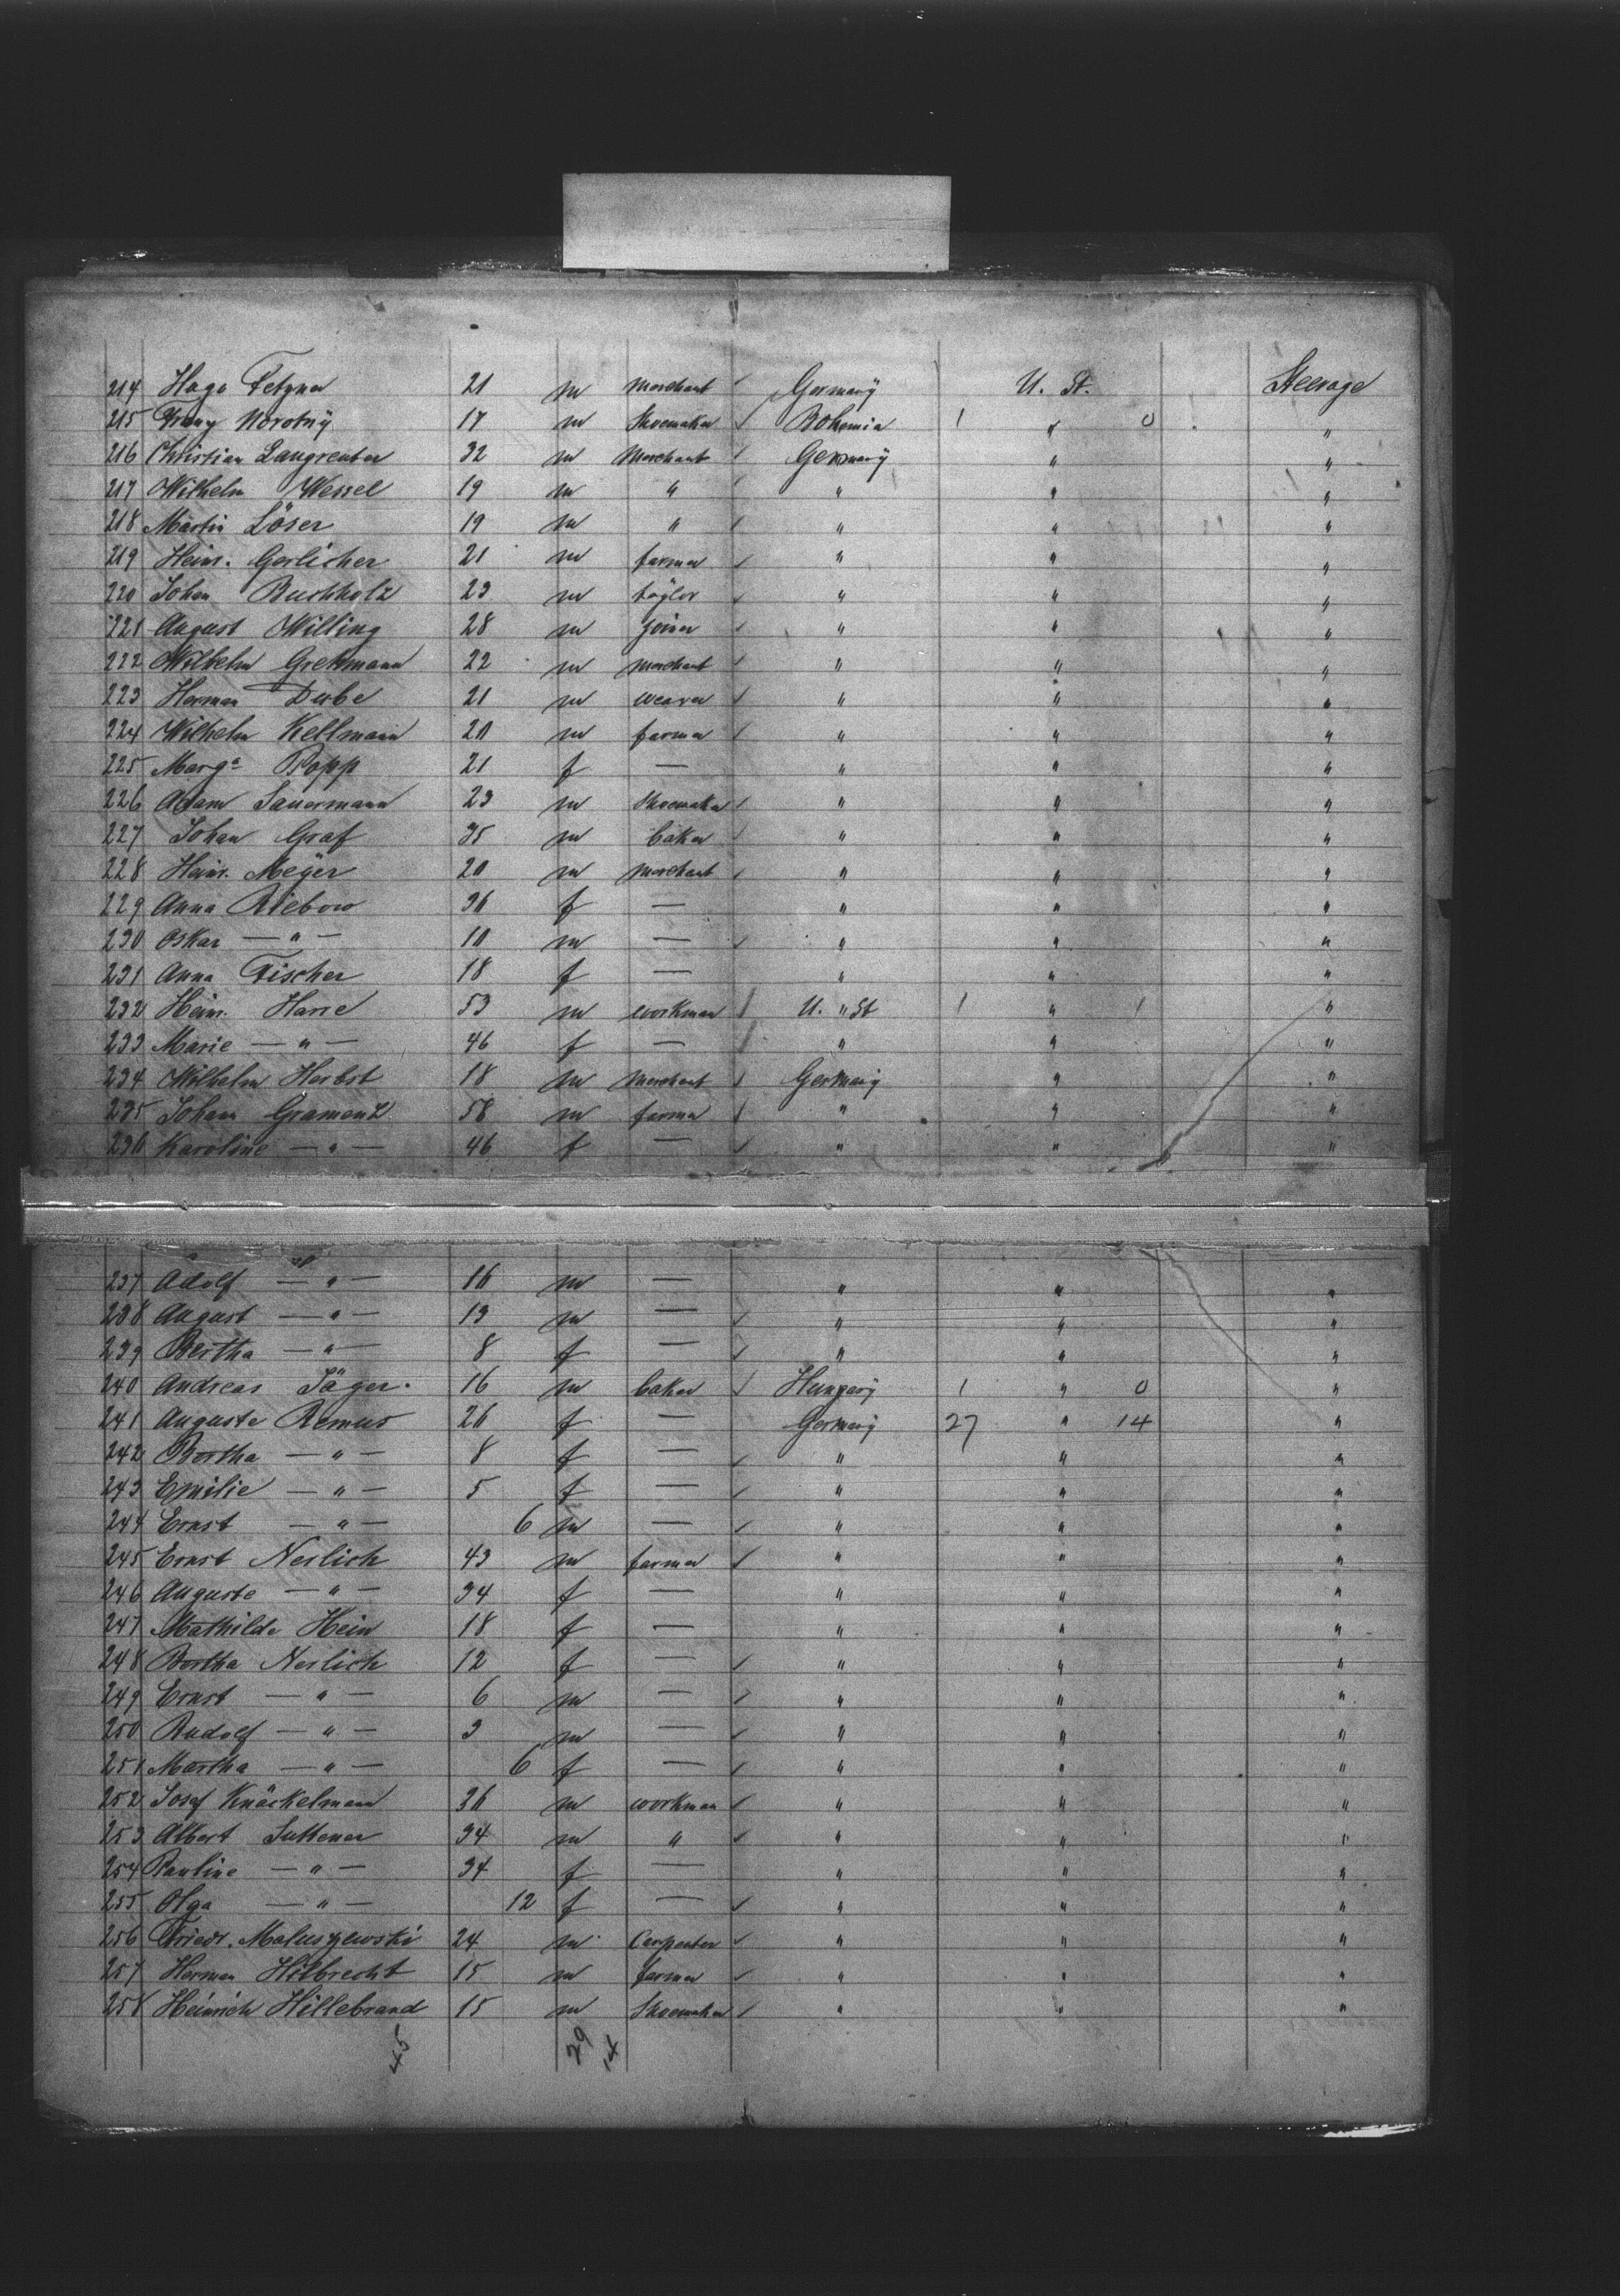 214 Hugo Fetzner 21 m Merchant Germany U. St. Steerage
215 Franz Novotny 17 m Shoemaker Bohemia 1 " 0 "
216 Christian Langreuter 32 m Merchant Germany " "
217 Wilhelm Wessel 19 m " " " "
218 Martin Löser 19 m " " " "
219 Heinr. Gerlicher 21 m farmer " " "
220 Johan Buchholz 23 m taylor " " "
221 August Willing 28 m joiner " " "
222 Wilhelm Grekmann 22 m merchant " " "
223 Herman Derbe 21 m weaver " " "
224 Wilhelm Kellmann 20 m farmer " " "
225 Marga Popp 21 f — " " "
226 Adam Sauermann 23 m Shoemaker " " "
227 Johan Graf 35 m baker " " "
228 Heinr. Meÿer 20 m merchant " " "
229 Anna Riebow 36 f — " " "
230 Oskar — " — 10 m — " " "
231 Anna Fischer 18 f — " " "
232 Heinr. Harre 53 m workman U. " St 1 " 1 "
233 Marie — " — 46 f — " " "
234 Wilhelm Herbst 18 m Merchant Germany " "
235 Johann Gramenz 58 m farmer " " "
236 Karoline — " — 46 f — " " "
237 Adolf — " — 16 m — " " "
238 August — " — 13 m — " " "
239 Bertha — " — 8 f — " " "
240 Andreas Jäger. 16 m baker Hungary 1 " 0 "
241 Auguste Remus 26 f — Germany 27 " 14 "
242 Bertha — " — 8 f — " " "
243 Emilie — " — 5 f — " " "
244 Ernst — " — 6 m — " " "
245 Ernst Nerlich 43 m farmer " " "
246 Auguste — " — 34 f — " " "
247 Mathilde Hein 18 f — " " "
248 Bertha Nerlich 12 f — " " "
249 Ernst — " — 6 m — " " "
250 Rudolf — " — 3 m — " " "
251 Martha — " — 6 f — " " "
252 Josef Knäckelmann 36 m workman " " "
253 Albert Suttener 34 m " " " "
254 Pauline — " — 34 f — " " "
255 Olga — " — 12 f — " " "
256 Friedr. Maluszewski 24 m Carpenter " " "
257 Herman Hilbrecht 15 m farmer " " "
258 Heinrich Hillebrand 15 m Shoemaker " " "
45 29 14